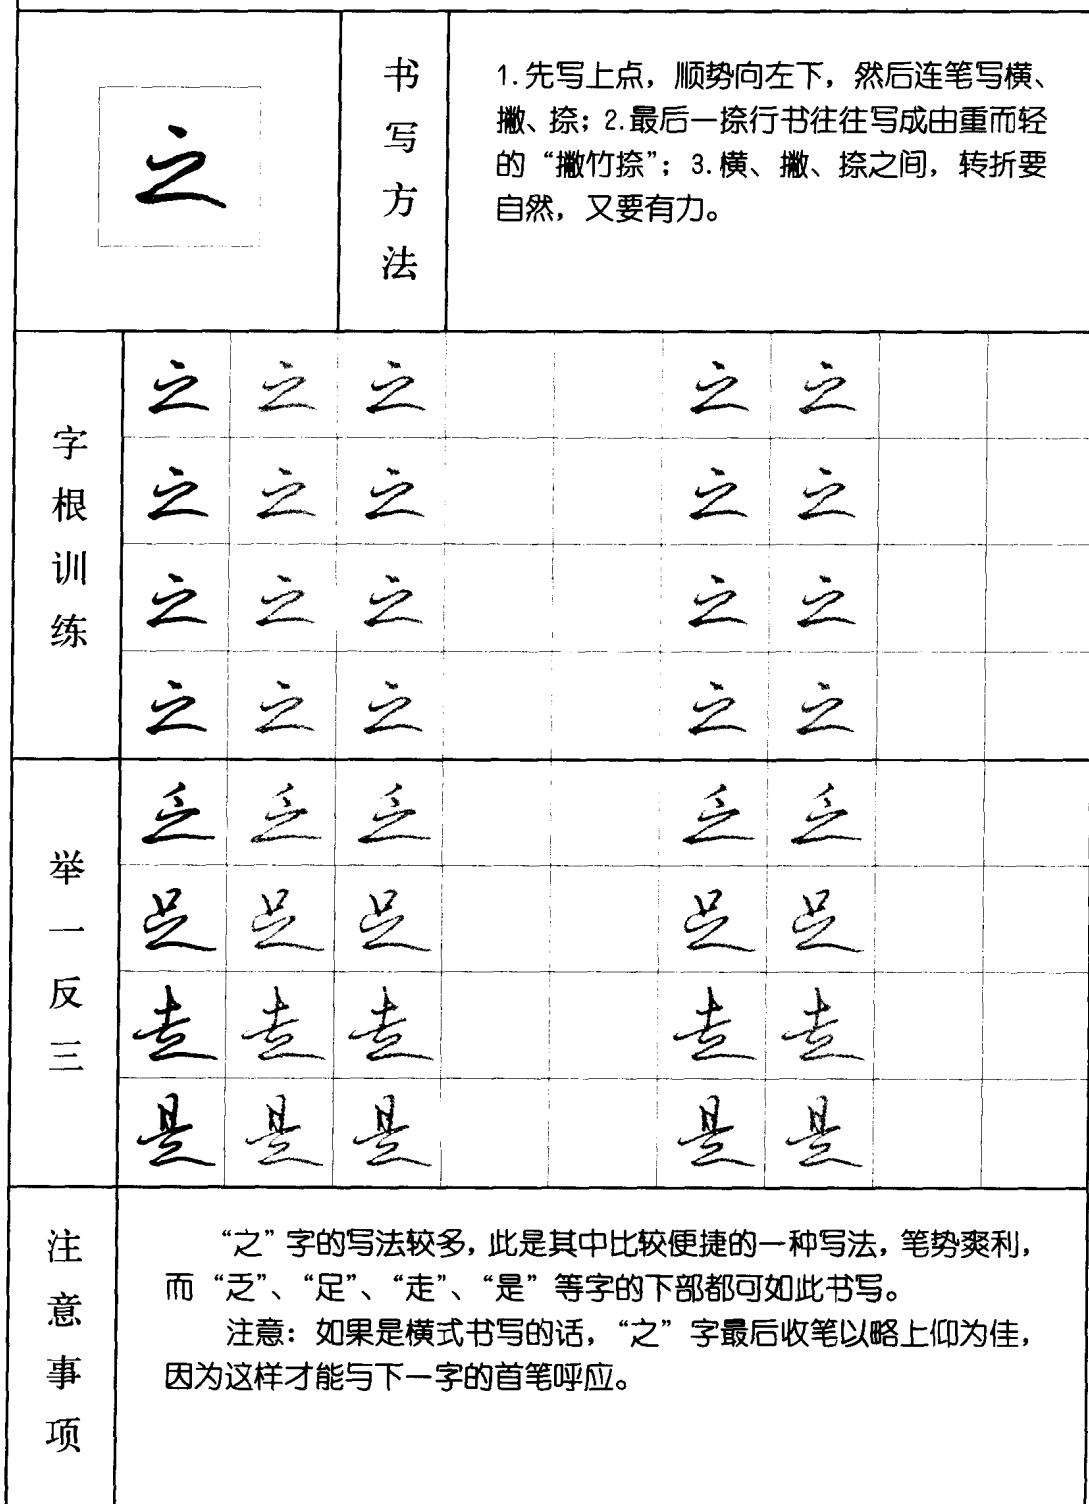 之
书写方法
1.先写上点，顺势向左下，然后连笔写横、
撇、捺；2.最后一捺行书往往写成由重而轻
的“撇竹捺”；3.横、撇、捺之间，转折要
自然，又要有力。
字根训练
之 之 之 之 之
之 之 之 之 之
之 之 之 之 之
之 之 之 之 之
举一反三
乏 乏 乏 乏 乏
足 足 足 足 足
走 走 走 走 走
是 是 是 是 是
注意事项
“之”字的写法较多，此是其中比较便捷的一种写法，笔势爽利，
而“乏”、“足”、“走”、“是”等字的下部都可如此书写。
注意：如果是横式书写的话，“之”字最后收笔以略上仰为佳，
因为这样才能与下一字的首笔呼应。